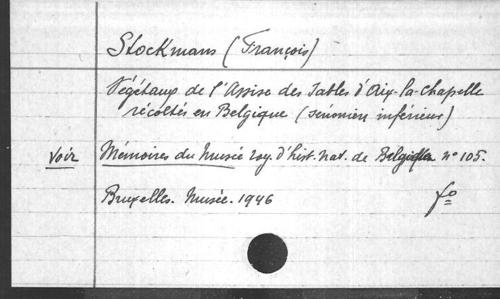 Stockmans (François)
Végétaux de l'Assise des Sables d'Aix-la-Chapelle
récoltés en Belgique (sénonien inférieur)
voir Mémoires du Musée roy. d'hist. nat. de Belgique n° 105.
Bruxelles. Musée. 1946 f°